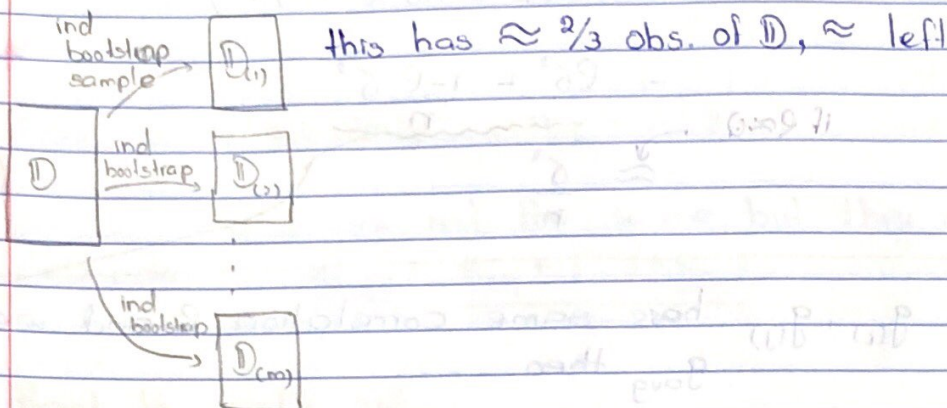 ind
bootstrap
sample
𝔻₍₁₎
this has ≈ 2/3 obs. of 𝔻, ≈ left
𝔻
ind
bootstrap
𝔻₍₂₎
ind
bootstrap
𝔻₍ₘ₎